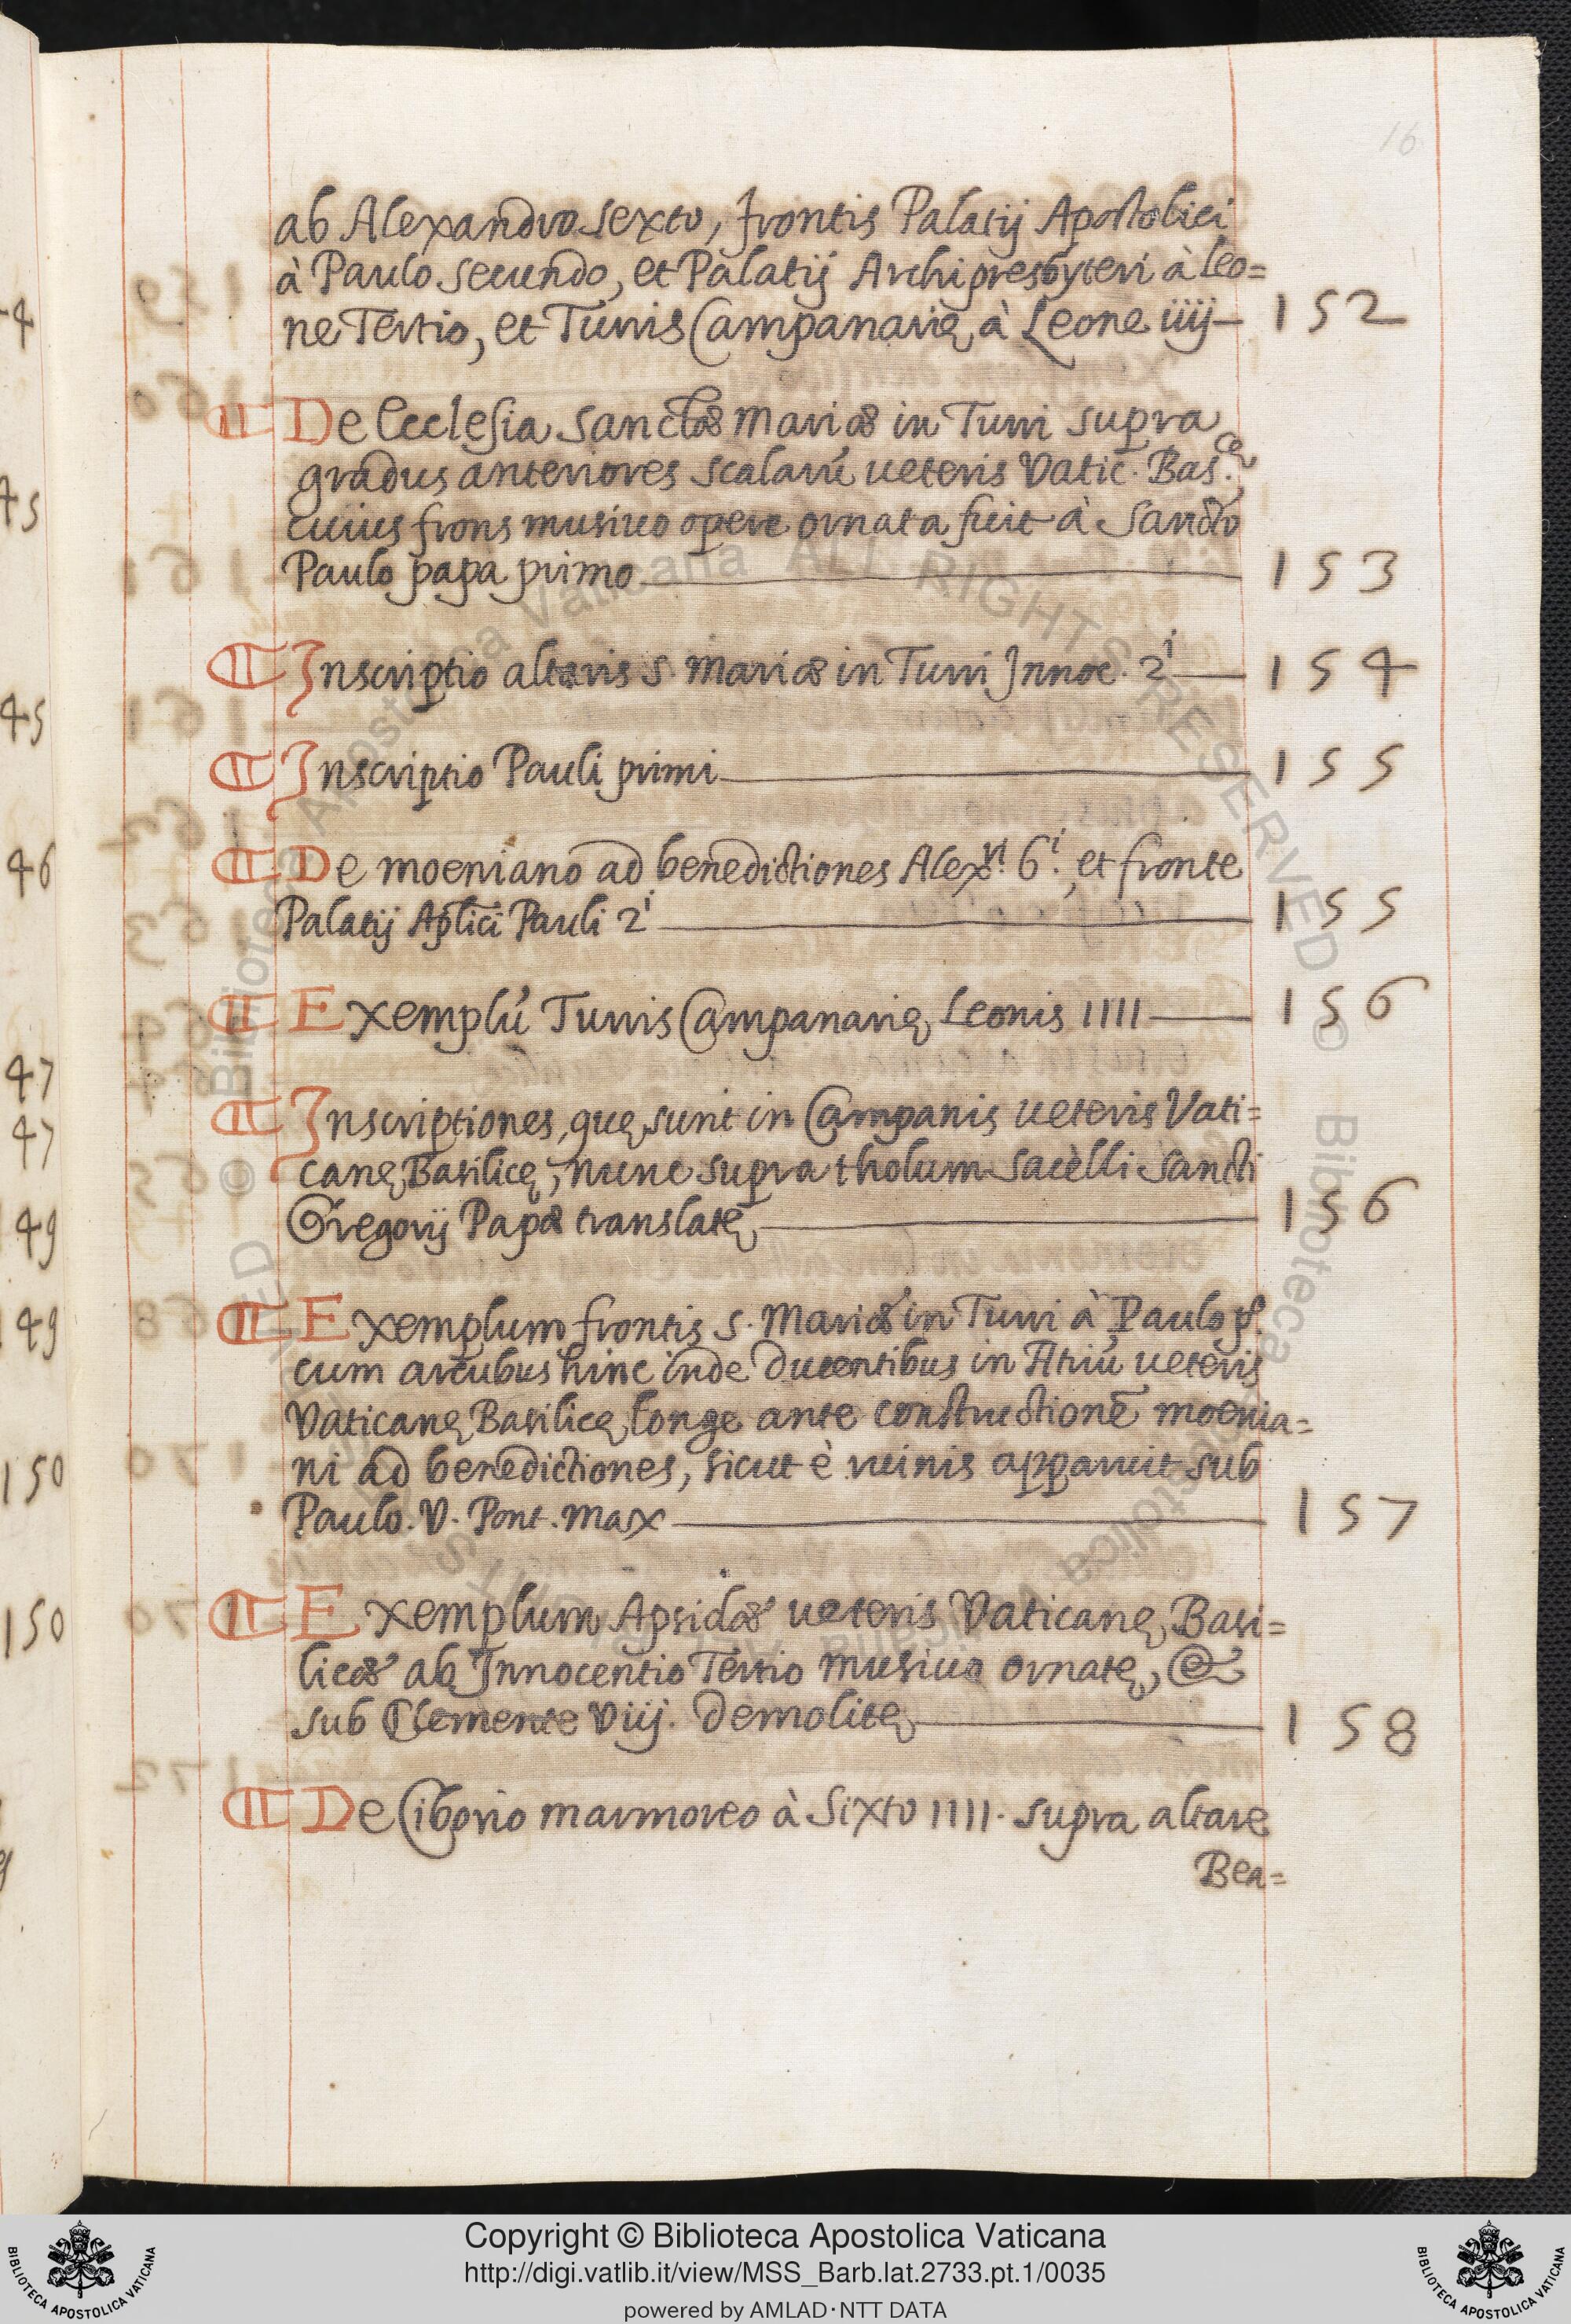 16
ab Alexandro sexto, frontis Palatij Apostolici
à Paulo secundo, et Palatij Archipresbyteri à Leo=
ne Tertio, et Turris Campanarię à Leone iiij— 152
De Ecclesia Sanctæ Mariæ in Turri supra
gradus anteriores scalarū ueteris Vatic. Bas.cę
cuius frons musiuo opere ornata fuit à Sancto
Paulo papa primo 153
Inscriptio altaris S. Mariæ in Turri Innoc. 2i 154
Inscriptio Pauli primi 155
De moeniano ad benedictiones Alexri. 6i., et fronte
Palatij Aplici Pauli 2i 155
Exemplū Turris Campanarię Leonis IIII 156
Inscriptiones, quę sunt in Campanis ueteris Vati=
canę Basilicę, nunc supra tholum sacelli Sancti
Gregorij Papæ translatę 156
Exemplum frontis S. Mariæ in Turri à Paulo pº.
cum arcubus hinc inde ducentibus in Atriū ueteris
Vaticanę Basilicę longe ante constructionē moenia=
ni ad benedictiones, sicut è ruinis apparuit sub
Paulo. V. Pont. Max 157
Exemplum Apsidæ ueteris Vaticanę Basi=
licæ ab Innocentio Tertio musiuo ornatę, &
sub Clemente Viij. demolitę 158
De Ciborio marmoreo à Sixto IIII. supra altare
Bea=
45
45
46
47
47
49
49
150
150
Copyright © Biblioteca Apostolica Vaticana
http://digi.vatlib.it/view/MSS_Barb.lat.2733.pt.1/0035
powered by AMLAD·NTT DATA
BIBLIOTECA APOSTOLICA VATICANA
BIBLIOTECA APOSTOLICA VATICANA